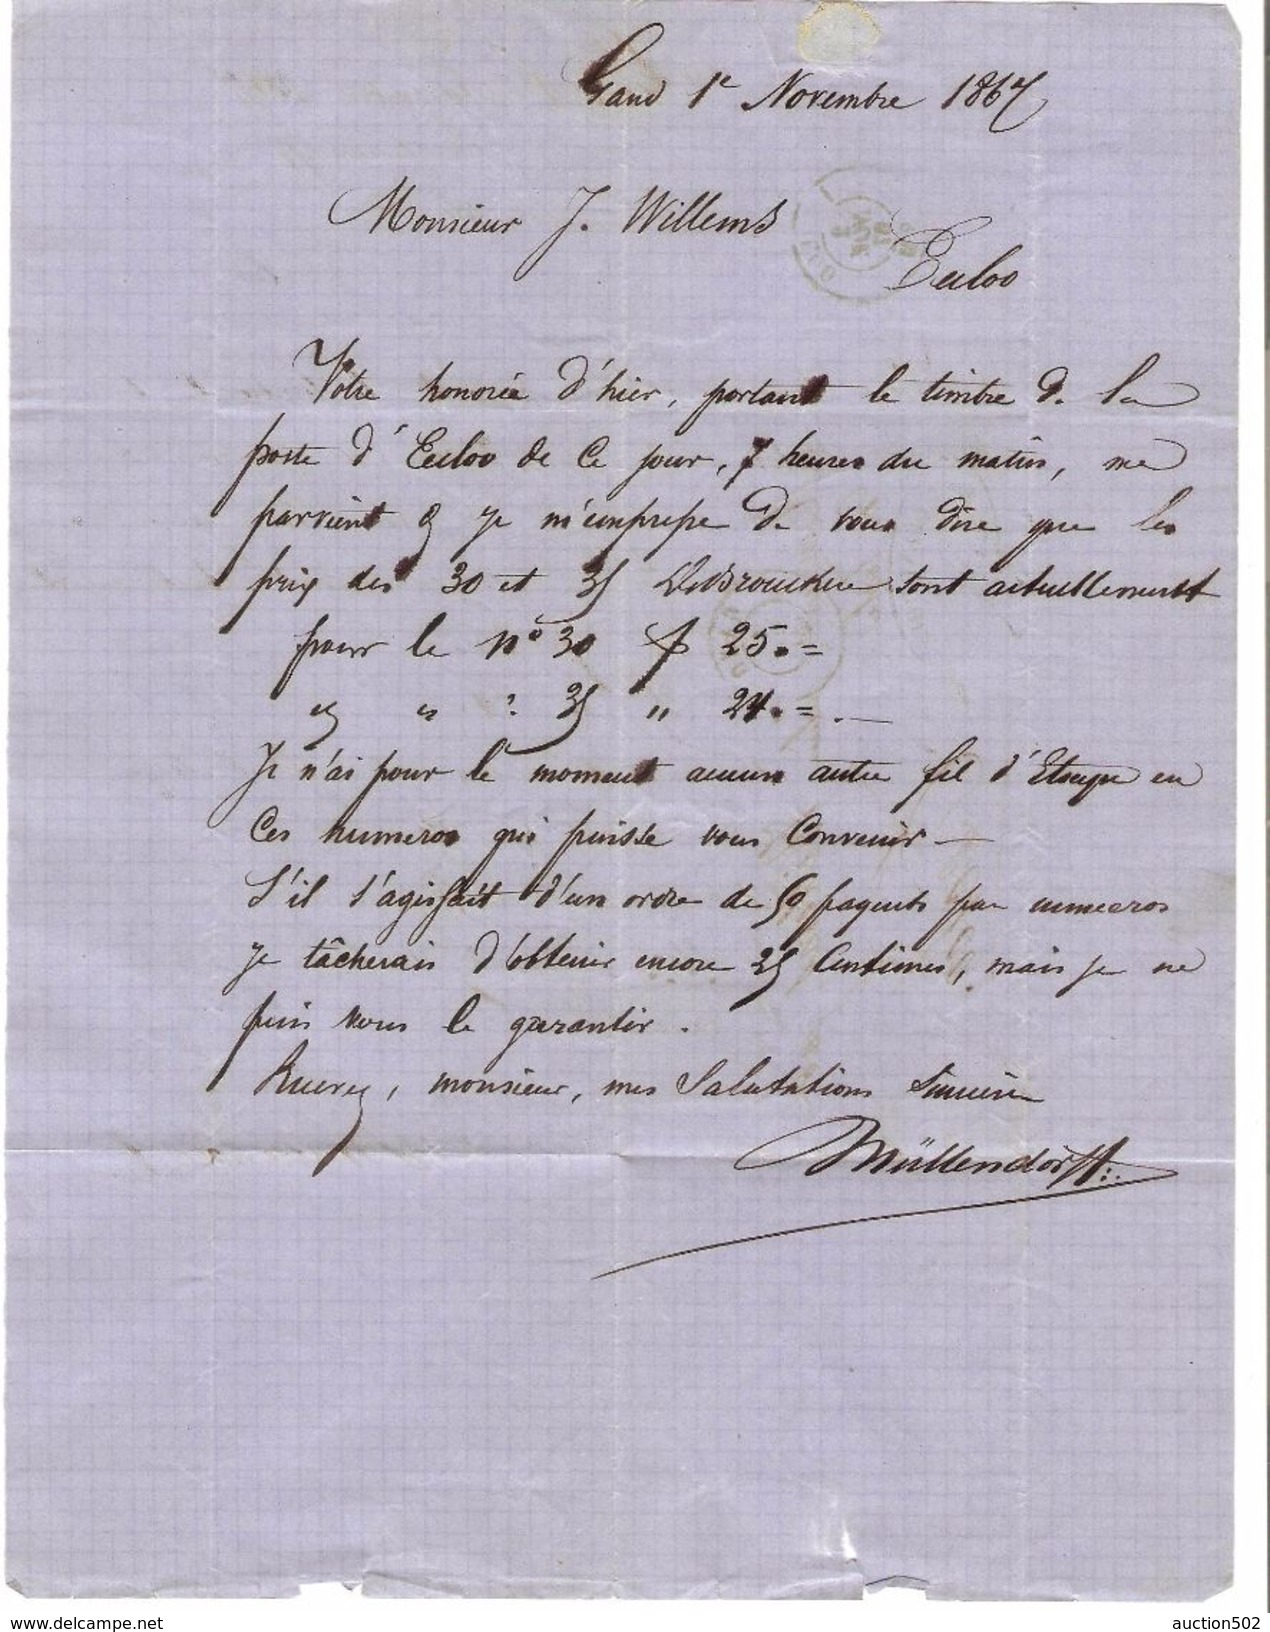 Gand 1e Novembre 1867
Monsieur J. Willems
Eecloo
Votre honorée d'hier, portant le timbre de la
poste d'Eecloo de ce jour, 7 heures du matin, me
parvient & je m'empresse de vous dire que les
prix des 30 et 35 DeBrouckere sont actuellement
pour le no 30 f 25.=
" " : 35 " 24.=.—
Je n'ai pour le moment aucun autre fil d'Etoupe en
ces numeros qui puisse vous convenir —
S'il s'agissait d'un ordre de 50 paquets par numeros
je tâcherais d'obtenir encore 25 Centimes, mais je ne
puis vous le garantir.
Recevez, monsieur, mes Salutations Sincères
Müllendorff
delcampe.net
auction502